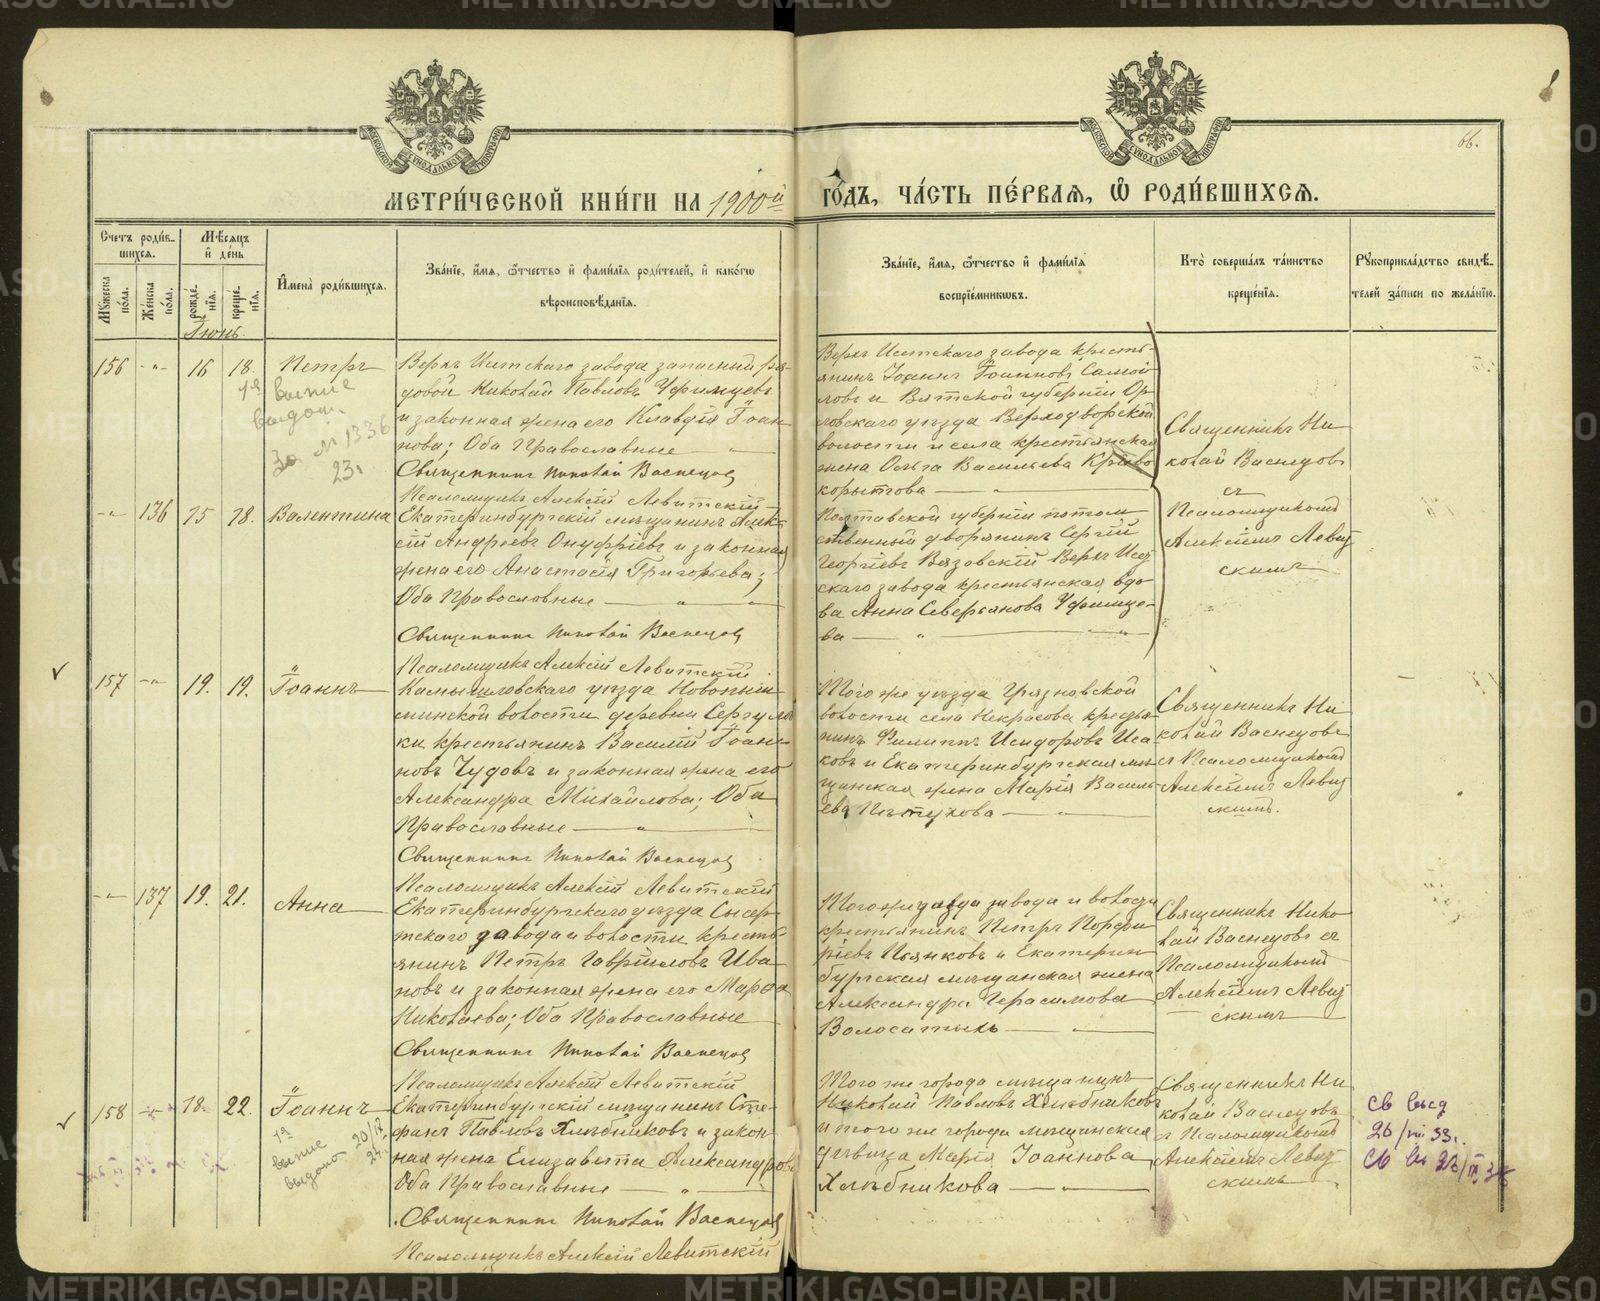 МЕТРИ́ЧЕСКОЙ КНИ́ГИ НА 1900й ГО́ДЪ, ЧА́СТЬ ПЕ́РВАЯ, Ѿ РОДИ́ВШИХСЯ.
66.
Счетъ роди́в-
шихся.
Мѣсяцъ
и́ де́нь
Мꙋжеска по́ла.
Же́нска по́ла.
рожде́-
нїя.
креще́-
нїя.
И́мена̀ роди́вшихся.
Зва́нїе, и́мя, ѻ́тчество и́ фами́лїя роди́телей, и́ како́гѡ
вѣроисповѣ́данїя.
Зва́нїе, и́мя, ѻ́тчество и́ фами́лїя
воспрїе́мникѡвъ.
Кто̀ соверша́лъ та́инство
креще́нїя.
Рꙋкоприкла́дство свидѣ́-
телей за́писи по жела́нїю.
Іюнь.
156 -"- 16 18. Петръ
Верхъ Исетскаго завода запасный ря-
довой Николай Павловъ Уфимцевъ
и законная жена его Клавдія Іоан-
нова; Оба Православные
Священникъ Николай Васнецов
Псаломщикъ Алексій Левитскій
Верхъ Исетскаго завода кресть-
янинъ Іоаннъ Іоанновъ Самой-
ловъ и Вятской губерніи Ор-
ловскаго уѣзда Верходворской
волости и села крестьянская
жена Ольга Васильева Криво-
корытова
Священникъ Ни-
колай Васнецовъ
съ
Псаломщикомъ
Алексѣемъ Левит-
скимъ
-"- 136 15 18. Валентина
Екатеринбургскій мѣщанинъ Алек-
сій Андреевъ Онуфріевъ и законная
жена его Анастасія Григорьева;
Оба Православные
Священникъ Николай Васнецов
Псаломщикъ Алексій Левитскій
Полтавской губерніи потом-
ственный дворянинъ Сергій
Георгіевъ Вязовскій Верхъ Исет-
скаго завода крестьянская вдо-
ва Анна Северьянова Уфимце-
ва
157 -"- 19. 19. Іоаннъ
Камышловскаго уѣзда Новопыш-
минской волости деревни
крестьянинъ Василій Іоан-
новъ Чудовъ и законная жена его
Александра Михайлова; Оба
Православные
Священникъ Николай Васнецов
Псаломщикъ Алексій Левитскій
Того же уѣзда Грязновской
волости села Некрасова крестья-
нинъ Филиппъ Исидоровъ Иса-
ковъ и Екатеринбургская мѣ-
щанская жена Марія Василь-
ева Пѣтухова
Священникъ Ни-
колай Васнецовъ
съ Псаломщикомъ
Алексѣемъ Левит-
скимъ.
-"- 137 19. 21. Анна
Екатеринбургскаго уѣзда Сысер-
тскаго завода и волости кресть-
янинъ Петръ Гавріиловъ Ива-
новъ и законная жена его Марфа
Николаева; Оба Православные
Священникъ Николай Васнецов
Псаломщикъ Алексій Левитскій
Того же уѣзда завода и волости
крестьянинъ Петръ Порфи-
ріевъ Пьянковъ и Екатерин-
бургская мѣщанская жена
Александра Герасимова
Волосатыхъ
Священникъ Нико-
лай Васнецовъ съ
Псаломщикомъ
Алексѣемъ Левит-
скимъ
158 -"- 18. 22. Іоаннъ
Екатеринбургскій мѣщанинъ Сте-
фанъ Павловъ Хлѣбниковъ и закон-
ная жена Елизавета Александрова
Оба Православные
Священникъ Николай Васнецов
Псаломщикъ Алексій Левитскій
Того же города мѣщанинъ
Николай Павловъ Хлѣбниковъ
и того же города мѣщанская
дѣвица Марія Іоаннова
Хлѣбникова
Священникъ Ни-
колай Васнецовъ
съ Псаломщикомъ
Алексѣемъ Левит-
скимъ
Св выд
20/VIII 33г.
METRIKI.GASO-URAL.RU